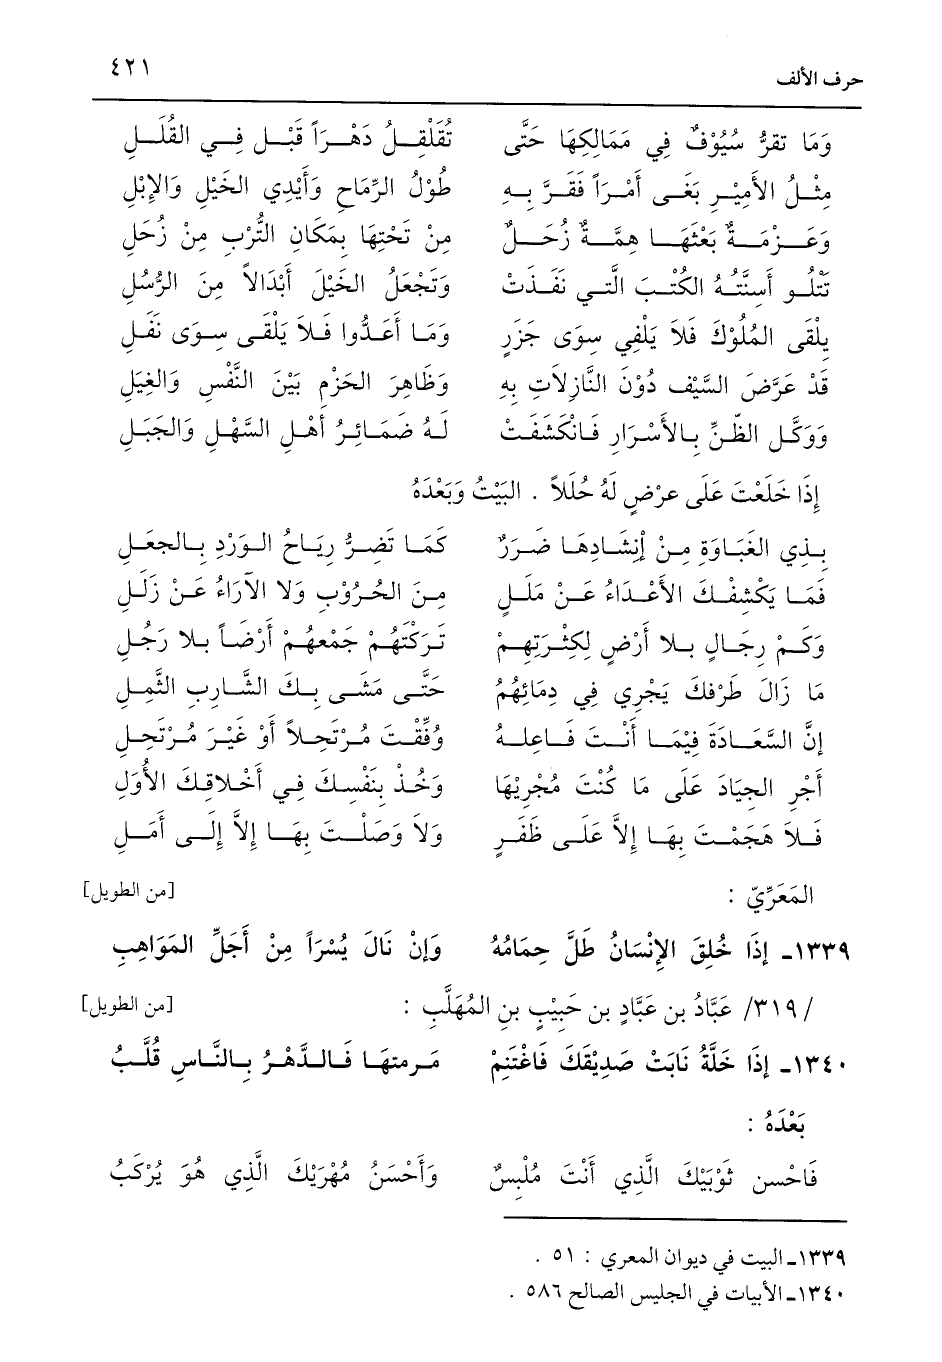 ٤٢١
حرف الألف
وَمَا تَقرُّ سُيُوْفٌ فِي مَمَالِكِهَا حَتَّى تُقَلْقِلُ دَهْراً قَبْل فِي القُلَلِ
مِثْلُ الأَمِيْرِ بَغَى أَمْراً فَقَرَّ بِهِ طُوْلُ الرِّمَاحِ وَأَيْدِي الخَيْلِ وَالإِبِلِ
وَعَزْمَةٌ بَعَثَهَا هِمَّةٌ زُحَلٌ مِنْ تَحْتِهَا بِمَكَانِ التُّرْبِ مِنْ زُحَلِ
تَتْلُو أَسِنَّتُهُ الكُتْبَ الَّتِي نَفَذَتْ وَتَجْعَلُ الخَيْلَ أَبْدَالاً مِنَ الرُّسُلِ
يَلْقَى المُلُوْكَ فَلاَ يَلْفِي سِوَى جَزَرٍ وَمَا أَعَدُّوا فَلاَ يَلْقَى سِوَى نَفَلِ
قَدْ عَرَّضَ السَّيْفَ دُوْنَ النَّازِلاَتِ بِهِ وَظَاهَرَ الحَزْمِ بَيْنَ النَّفْسِ وَالغِيَلِ
وَوَكَّلَ الظَّنَّ بِالأَسْرَارِ فَانْكَشَفَتْ لَهُ ضَمَائِرُ أَهْلِ السَّهْلِ وَالجَبَلِ
إِذَا خَلَعْتَ عَلَى عِرْضٍ لَهُ حُلَلاً . البَيْتُ وَبَعْدَهُ
بِذِي الغَبَاوَةِ مِنْ إِنْشَادِهَا ضَرَرٌ كَمَا تَضِرُّ رِيَاحُ الوَرْدِ بِالجعَلِ
فَمَا يَكْشِفُكَ الأَعْدَاءُ عَنْ مَلَلٍ مِنَ الحُرُوْبِ وَلاَ الآرَاءُ عَنْ زَلَلِ
وَكَمْ رِجَالٍ بِلاَ أَرْضٍ لِكَثْرَتِهِمْ تَرَكْتَهُمْ جَمْعَهُمْ أَرْضاً بِلاَ رَجُلِ
مَا زَالَ طَرْفُكَ يَجْرِي فِي دِمَائِهُمُ حَتَّى مَشَى بِكَ الشَّارِبِ الثَّمِلِ
إِنَّ السَّعَادَةَ فِيْمَا أَنْتَ فَاعِلهُ وُفِّقْتَ مُرْتَحِلاً أَوْ غَيْرَ مُرْتَحِلِ
أَجْرِ الجِيَادَ عَلَى مَا كُنْتَ مُجْرِيْهَا وَخُذْ بِنَفْسِكَ فِي أَخْلاَقِكَ الأُوَلِ
فَلاَ هَجَمْتَ بِهَا إِلاَّ عَلَى ظَفَرٍ وَلاَ وَصَلْتَ بِهَا إِلاَّ إِلَى أَمَلِ
المَعَرِّيّ : [من الطويل]
١٣٣٩ـ إِذَا خُلِقَ الإِنْسَانُ ظَلَّ حِمَامُهُ وَإِنْ نَالَ يُسْرَاً مِنْ أَجَلِّ المَوَاهِبِ
/ ٣١٩/ عَبَّادُ بن عَبَّادِ بن حَبِيْبٍ بن المُهَلَّبِ : [من الطويل]
١٣٤٠ـ إِذَا خَلَّةٌ نَابَتْ صَدِيْقَكَ فَاغْتَنِمْ مَرمتهَا فَالدَّهْرُ بِالنَّاسِ قُلَّبُ
بَعْدَهُ :
فَاحْسن ثَوْبَيْكَ الَّذِي أَنْتَ مُلْبِسٌ وَأَحْسَنُ مُهْرَيْكَ الَّذِي هُوَ يُرْكَبُ
١٣٣٩ـ البيت في ديوان المعري : ٥١ .
١٣٤٠ـ الأبيات في الجليس الصالح ٥٨٦ .